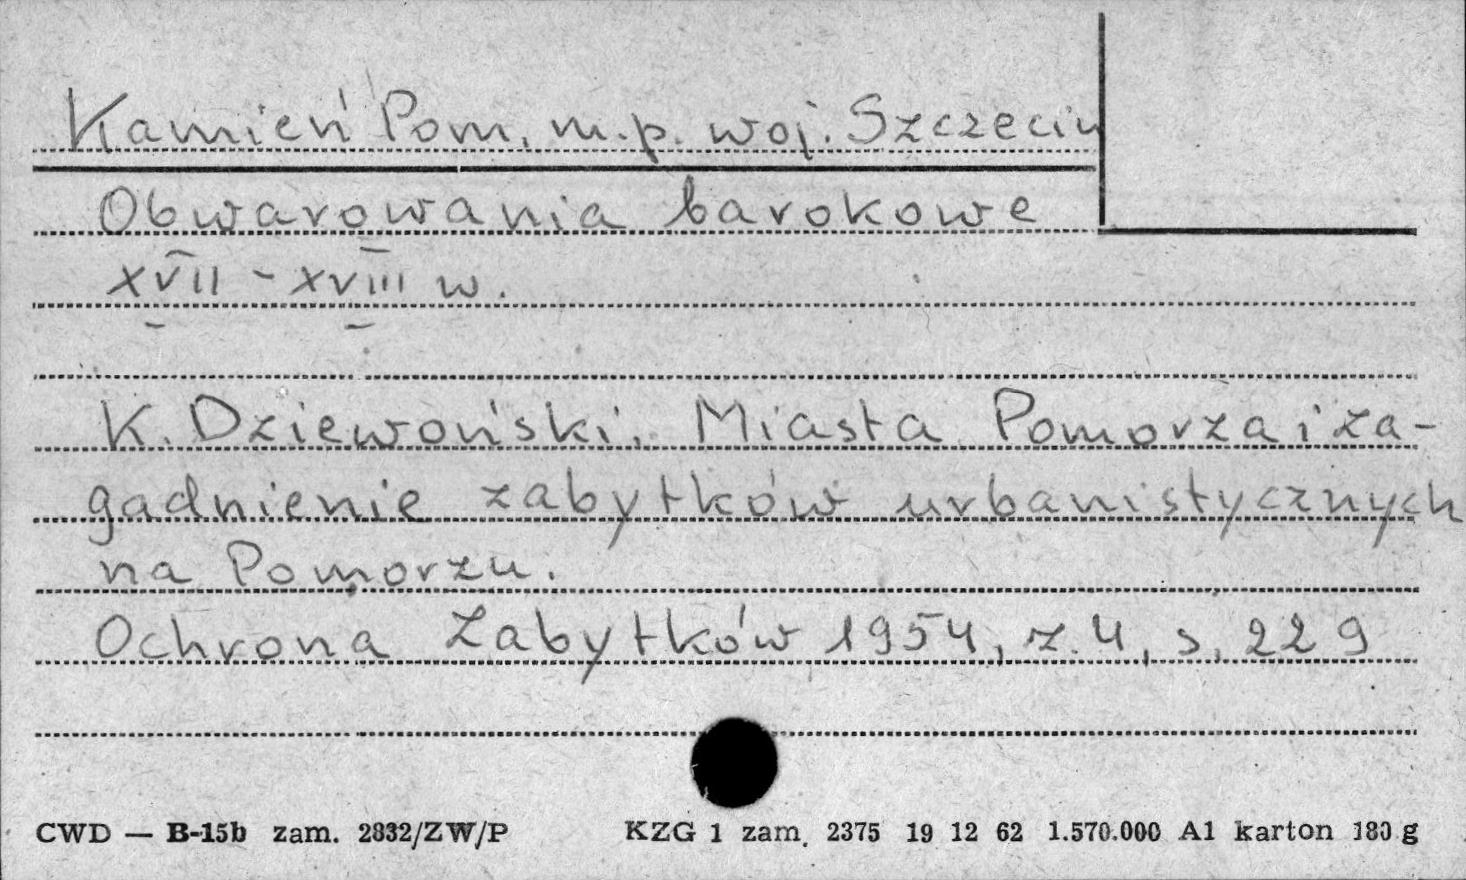 Kamień Pom. m.p. woj. Szczecin
Obwarowania barokowe
XVII - XVIII w.
K. Dziewoński. Miasta Pomorza i za-
gadnienie zabytków urbanistycznych
na Pomorzu.
Ochrona Zabytków 1954, z. 4, s. 229
CWD — B-15b zam. 2832/ZW/P KZG 1 zam. 2375 19 12 62 1.570.000 A1 karton 180 g